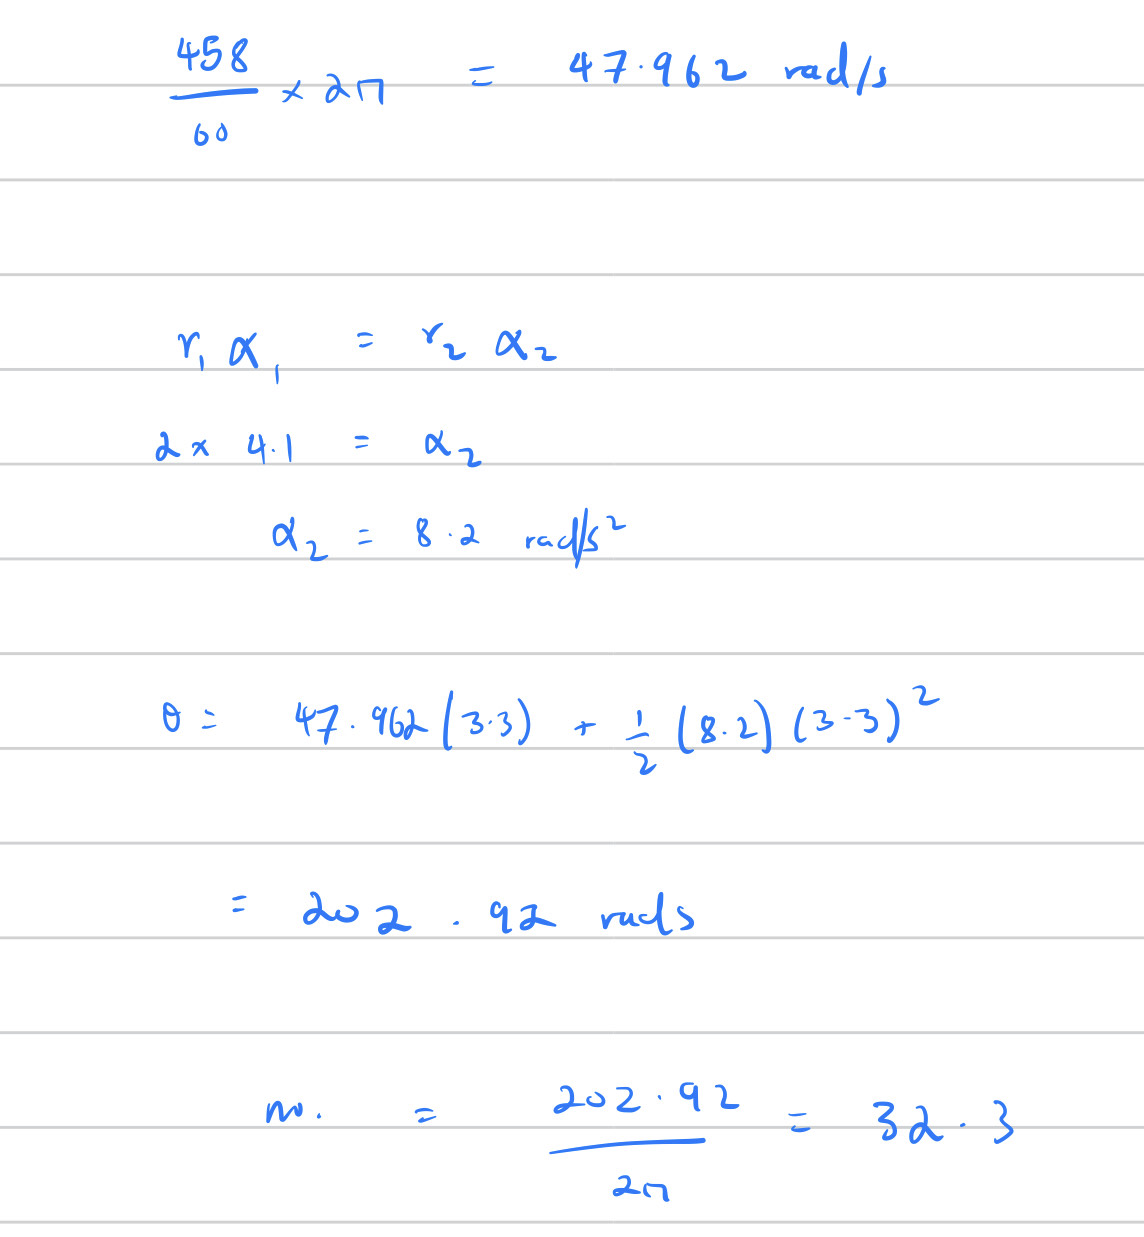 458/60 × 2π = 47.962 rad/s
r₁ α₁ = r₂ α₂
2 × 4.1 = α₂
α₂ = 8.2 rad/s²
θ = 47.962 (3.3) + 1/2 (8.2) (3.3)²
= 202.92 rads
no. = 202.92/2π = 32.3